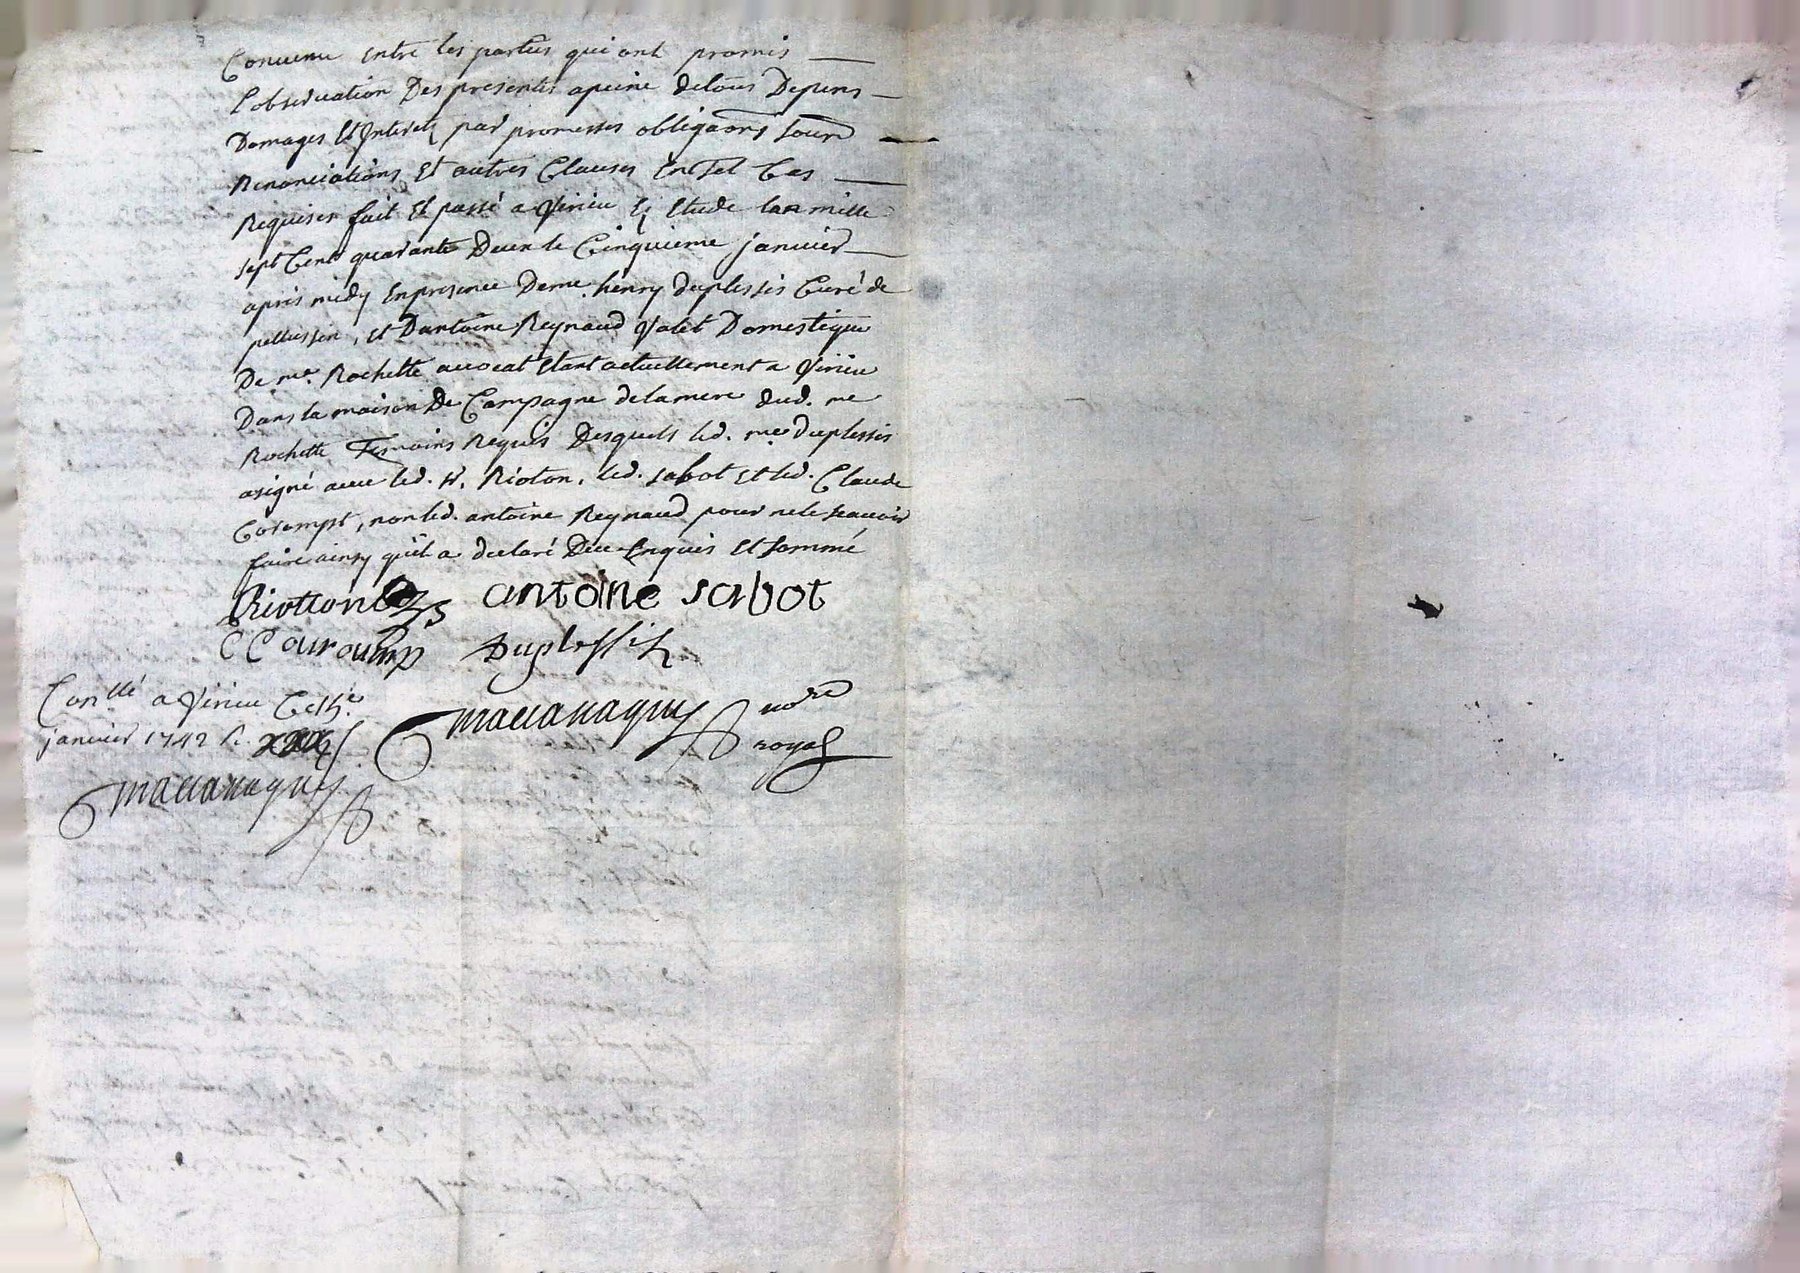 Convenu Entre les parties qui ont promis
L'observation Des presentes apeine detous Depens
Domages Et Interets par promesses obligaons soum
Renonciations Et autres Clauses En Tel Cas
Requises fait Et passé a Virieu Etude lan mille
sept Cent quarante Deux le Cinquieme janvier
apres midy Enpresence Deme. henry duplessis Curé de
pellussin, et Dantoine Reynaud Valet Domestique
De me. Rochette avocat Etant actuellement a Virieu
Dans la maison De Campagne delamere dud. me
Rochette Temoins Requis Desquels led. me. duplessis
asigné avec led. sr. Rioton, led. sabot Et led. Claude
Corompt, non led. antoine Reynaud pour nele scavoir
faire ainsy quil a declaré Deue Enquis Et sommé
Riotton antoine sabot
CCouroump Duplessis
Conllé a Virieu Ce
janvier 1742 R.
mauanagny nore
royal
mauanagny